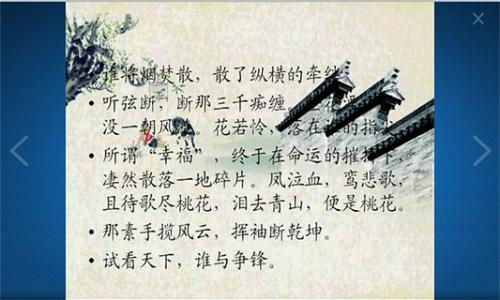 谁将烟焚散，散了纵横的牵绊
• 听弦断，断那三千痴缠 花
没一朝风 。花若怜，落在 的指
• 所谓“幸福”，终于在命运的摧 下，
凄然散落一地碎片。凤泣血，鸾悲歌，
且待歌尽桃花，泪去青山，便是桃花。
• 那素手揽风云，挥袖断乾坤。
• 试看天下，谁与争锋。